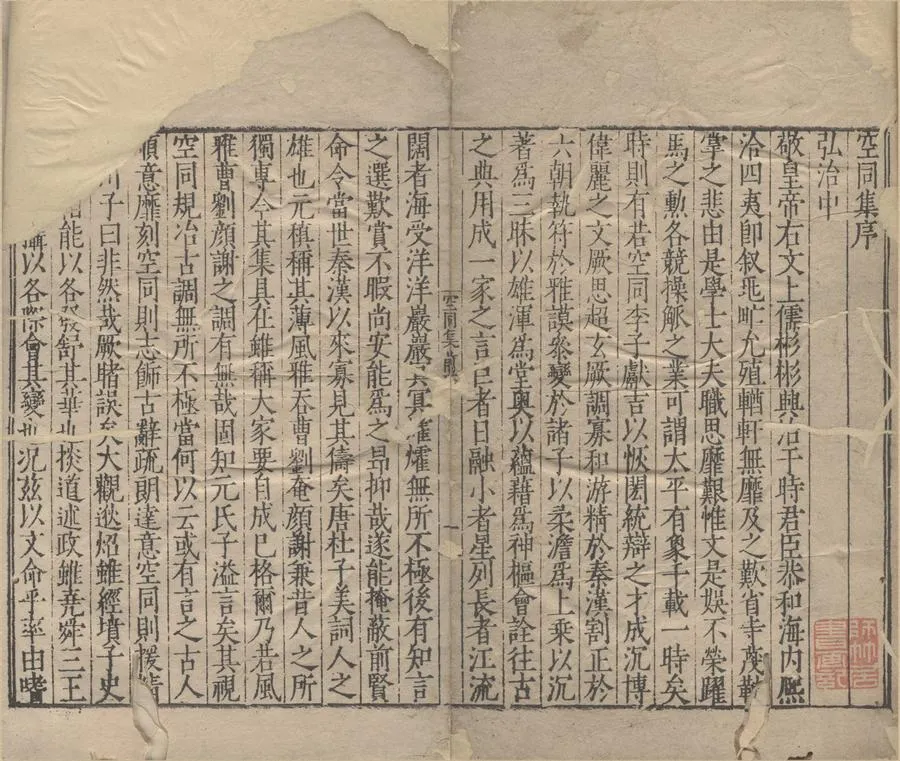 空同集序
弘治中
敬皇帝右文上儒彬彬興治于時君臣恭和海內熈
洽四夷卽叙兆甿允殖輶軒無靡及之歎省寺蔑鞅
掌之悲由是學士大夫職思靡艱惟文是娛不榮躍
馬之勲各競操觚之業可謂太平有象千載一時矣
時則有若空同李子獻吉以恢閎統辯之才成沉博
偉麗之文厥思超玄厥調寡和游精於秦漢割正於
六朝執符於雅謨叅變於諸子以柔澹爲上乘以沉
著爲三昧以雄渾爲堂奧以蘊藉爲神樞會詮往古
之典用成一家之言巳者日融小者星列長者江流
空同集前
一
闊者海受洋洋巖巖冥冥
燿無所不極後有知言
之選歎賞不暇尚安能爲之昻抑哉遂能掩蔽前賢
命令當世秦漢以來寡見其儔矣唐杜子美詞人之
雄也元稹稱其薄風雅吞曹劉奄顔謝兼昔人之所
獨專今其集具在雖稱大家要自成巳格爾乃若風
雅曹劉顔謝之調有無哉固知元氏子溢言矣其視
空同規冶古調無所不極當何以云或有言之古人
順意靡刻空同則志餙古辭疏朗達意空同則援精
川子曰非然哉厥睹誤矣大觀逖炤雖經墳子史
能以各發舒其華也掞道述政雖堯舜三王
以各際會其變也况兹以文命乎率由